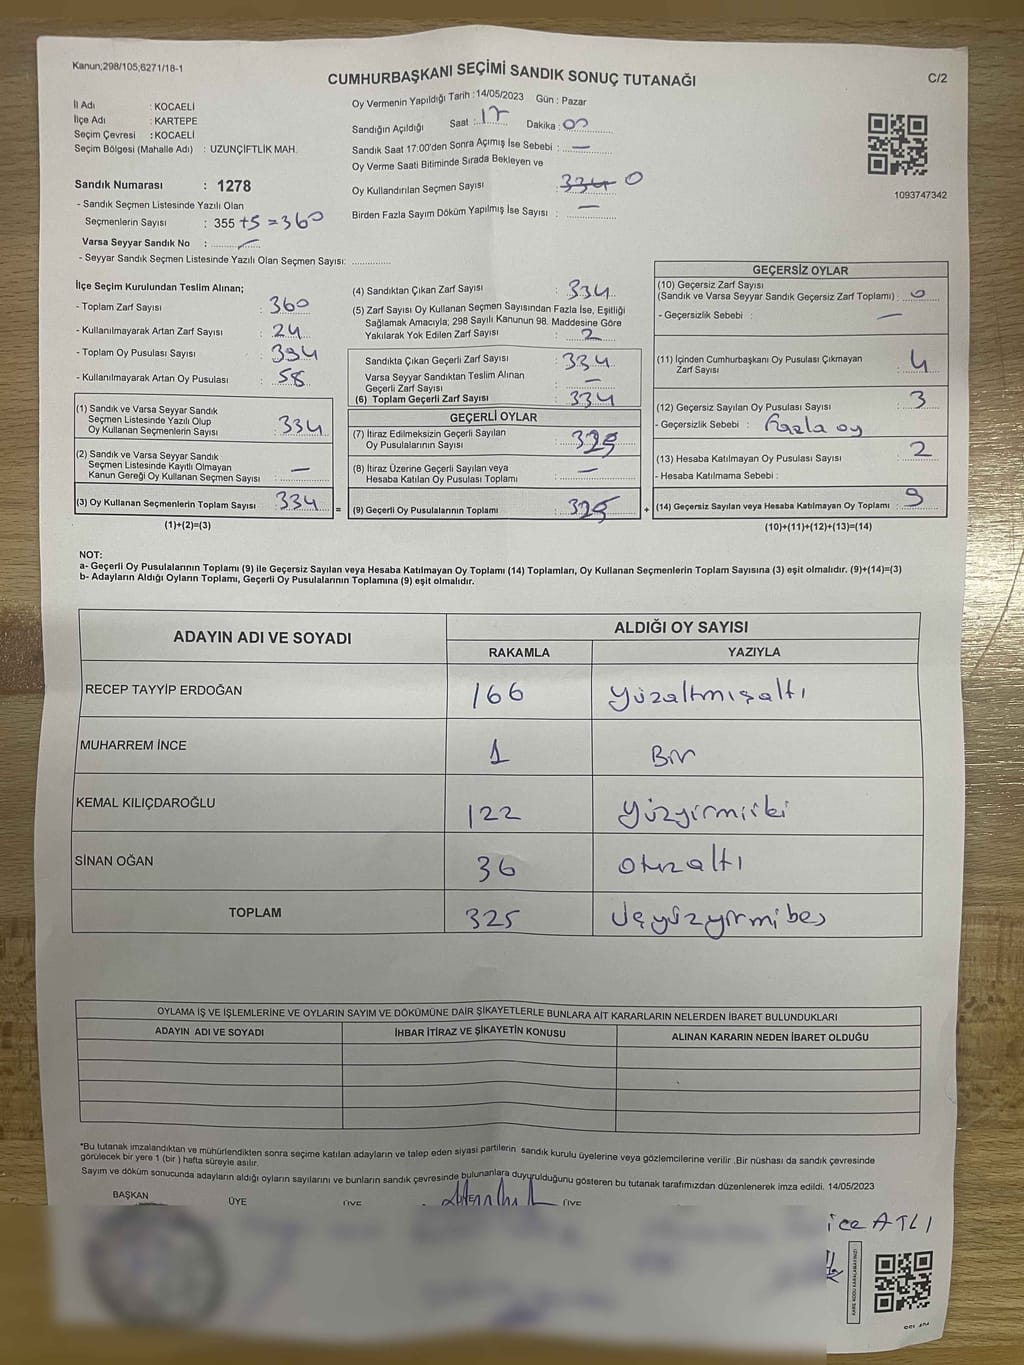 Kanun;298/105,6271/18-1
CUMHURBAŞKANI SEÇİMİ SANDIK SONUÇ TUTANAĞI
C/2
İl Adı : KOCAELİ
İlçe Adı : KARTEPE
Seçim Çevresi : KOCAELİ
Seçim Bölgesi (Mahalle Adı) : UZUNÇİFTLİK MAH.
Oy Vermenin Yapıldığı Tarih : 14/05/2023 Gün : Pazar
Sandığın Açıldığı Saat : 17 Dakika : 00
Sandık Saat 17:00'den Sonra Açımış İse Sebebi : —
Oy Verme Saati Bitiminde Sırada Bekleyen ve
Oy Kullandırılan Seçmen Sayısı : 334 0
Birden Fazla Sayım Döküm Yapılmış İse Sayısı : —
1093747342
Sandık Numarası : 1278
- Sandık Seçmen Listesinde Yazılı Olan
Seçmenlerin Sayısı : 355 +5 = 360
Varsa Seyyar Sandık No : —
- Seyyar Sandık Seçmen Listesinde Yazılı Olan Seçmen Sayısı:
İlçe Seçim Kurulundan Teslim Alınan;
- Toplam Zarf Sayısı : 360
- Kullanılmayarak Artan Zarf Sayısı : 24
- Toplam Oy Pusulası Sayısı : 394
- Kullanılmayarak Artan Oy Pusulası : 58
(1) Sandık ve Varsa Seyyar Sandık
Seçmen Listesinde Yazılı Olup
Oy Kullanan Seçmenlerin Sayısı : 334
(2) Sandık ve Varsa Seyyar Sandık
Seçmen Listesinde Kayıtlı Olmayan
Kanun Gereği Oy Kullanan Seçmen Sayısı : —
(3) Oy Kullanan Seçmenlerin Toplam Sayısı : 334
(1)+(2)=(3)
(4) Sandıktan Çıkan Zarf Sayısı : 334
(5) Zarf Sayısı Oy Kullanan Seçmen Sayısından Fazla İse, Eşitliği
Sağlamak Amacıyla; 298 Sayılı Kanunun 98. Maddesine Göre
Yakılarak Yok Edilen Zarf Sayısı : 2
Sandıkta Çıkan Geçerli Zarf Sayısı : 334
Varsa Seyyar Sandıktan Teslim Alınan
Geçerli Zarf Sayısı : —
(6) Toplam Geçerli Zarf Sayısı : 334
GEÇERLİ OYLAR
(7) İtiraz Edilmeksizin Geçerli Sayılan
Oy Pusulasının Sayısı : 325
(8) İtiraz Üzerine Geçerli Sayılan veya
Hesaba Katılan Oy Pusulası Toplamı : —
= (9) Geçerli Oy Pusulalarının Toplamı : 325 +
GEÇERSİZ OYLAR
(10) Geçersiz Zarf Sayısı
(Sandık ve Varsa Seyyar Sandık Geçersiz Zarf Toplamı) : 0
- Geçersizlik Sebebi : —
(11) İçinden Cumhurbaşkanı Oy Pusulası Çıkmayan
Zarf Sayısı : 4
(12) Geçersiz Sayılan Oy Pusulası Sayısı : 3
- Geçersizlik Sebebi : Fazla oy
(13) Hesaba Katılmayan Oy Pusulası Sayısı : 2
- Hesaba Katılmama Sebebi :
(14) Geçersiz Sayılan veya Hesaba Katılmayan Oy Toplamı : 9
(10)+(11)+(12)+(13)=(14)
NOT:
a- Geçerli Oy Pusulalarının Toplamı (9) ile Geçersiz Sayılan veya Hesaba Katılmayan Oy Toplamı (14) Toplamları, Oy Kullanan Seçmenlerin Toplam Sayısına (3) eşit olmalıdır. (9)+(14)=(3)
b- Adayların Aldığı Oyların Toplamı, Geçerli Oy Pusulalarının Toplamına (9) eşit olmalıdır.
ADAYIN ADI VE SOYADI
ALDIĞI OY SAYISI
RAKAMLA YAZIYLA
RECEP TAYYİP ERDOĞAN 166 Yüzaltmışaltı
MUHARREM İNCE 1 Bir
KEMAL KILIÇDAROĞLU 122 Yüzyirmiiki
SİNAN OĞAN 36 Otuzaltı
TOPLAM 325 Üçyüzyirmibeş
OYLAMA İŞ VE İŞLEMLERİNE VE OYLARIN SAYIM VE DÖKÜMÜNE DAİR ŞİKAYETLERLE BUNLARA AİT KARARLARIN NELERDEN İBARET BULUNDUKLARI
ADAYIN ADI VE SOYADI İHBAR İTİRAZ VE ŞİKAYETİN KONUSU ALINAN KARARIN NEDEN İBARET OLDUĞU
*Bu tutanak imzalandıktan ve mühürlendikten sonra seçime katılan adayların ve talep eden siyasi partilerin sandık kurulu üyelerine veya gözlemcilerine verilir .Bir nüshası da sandık çevresinde
görülecek bir yere 1 (bir ) hafta süreyle asılır.
Sayım ve döküm sonucunda adayların aldığı oyların sayılarını ve bunların sandık çevresinde bulunanlara duyurulduğunu gösteren bu tutanak tarafımızdan düzenlenerek imza edildi. 14/05/2023
BAŞKAN ÜYE ÜYE ÜYE
ice ATLI